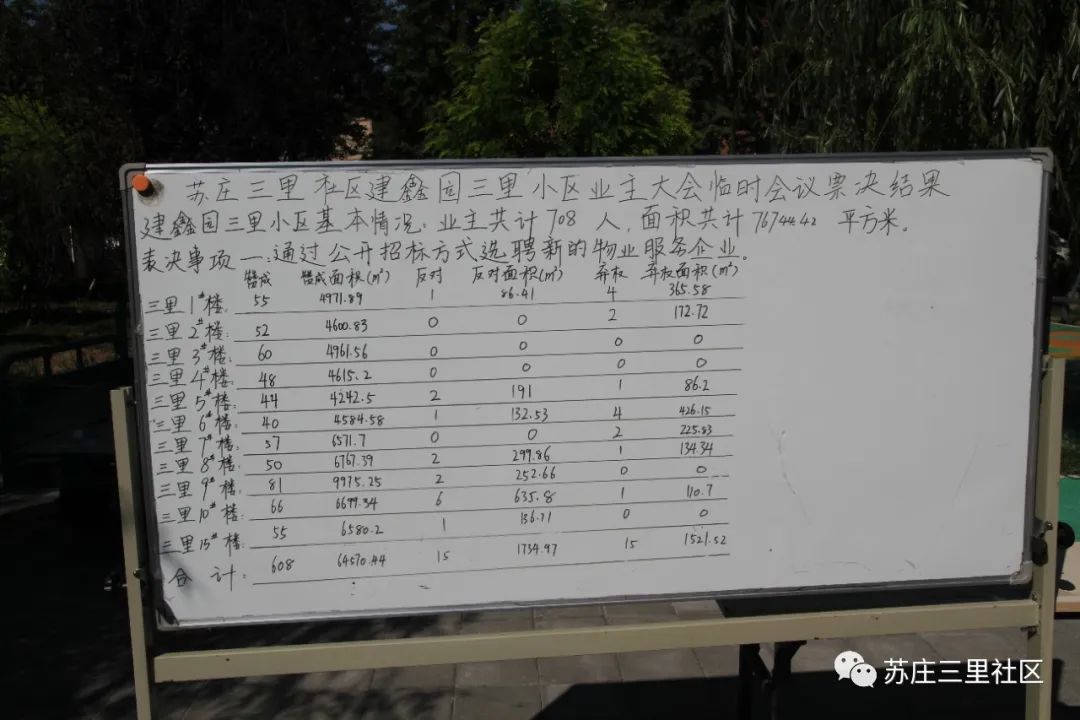 苏庄三里社区建鑫园三里小区业主大会临时会议票决结果
建鑫园三里小区基本情况：业主共计708人，面积共计76744.42平方米。
表决事项一：通过公开招标方式选聘新的物业服务企业。
赞成 赞成面积(m²) 反对 反对面积(m²) 弃权 弃权面积(m²)
三里1#楼： 55 4971.89 1 86.41 4 365.58
三里2#楼： 52 4600.83 0 0 2 172.72
三里3#楼： 60 4961.56 0 0 0 0
三里4#楼： 48 4615.2 0 0 0 0
三里5#楼： 44 4242.5 2 191 1 86.2
三里6#楼： 40 4584.58 1 132.53 4 426.15
三里7#楼： 57 6571.7 0 0 2 225.83
三里8#楼： 50 6767.39 2 299.86 1 134.34
三里9#楼： 81 9975.25 2 252.66 0 0
三里10#楼： 66 6699.34 6 635.8 1 110.7
三里15#楼： 55 6580.2 1 136.71 0 0
合计： 608 64570.44 15 1734.97 15 1521.52
苏庄三里社区